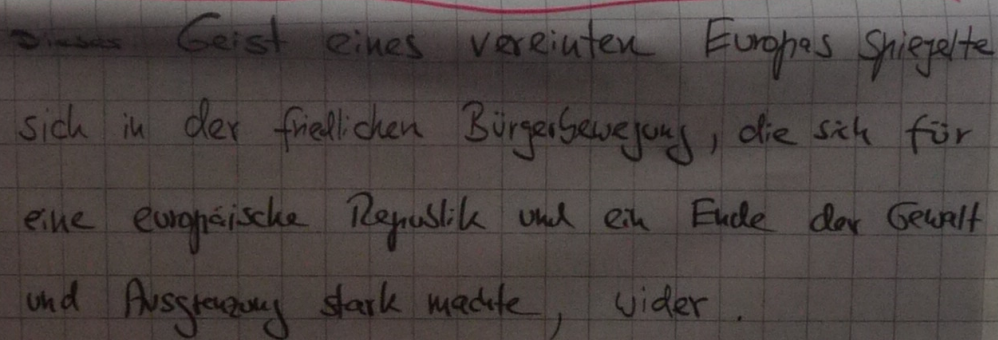 Dieses Geist eines vereinten Europas spiegelte
sich in der friedlichen Bürgerbewegung, die sich für
eine europäische Republik und ein Ende der Gewalt
und Ausgrenzung stark machte, wider.